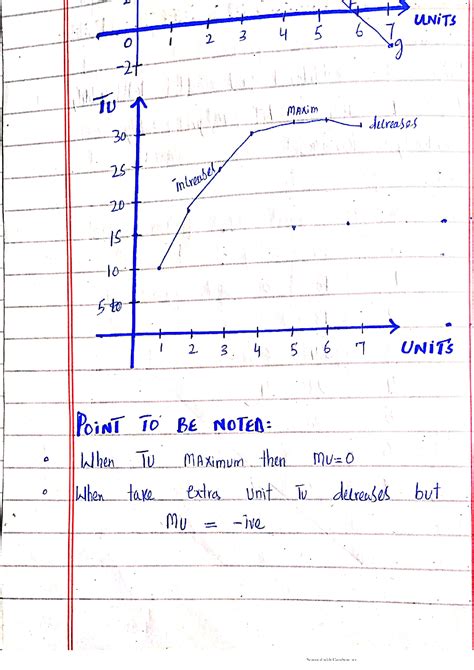 2
0 1 2 3 4 5 6 7 UNITS
g
-2
TU
MAXIM
decreases
30
increases
25
20
15
10
5
1 2 3 4 5 6 7 UNITS
POINT TO BE NOTED:
When TU MAXimum then MU=0
When take extra unit TU decreases but
MU = -ive